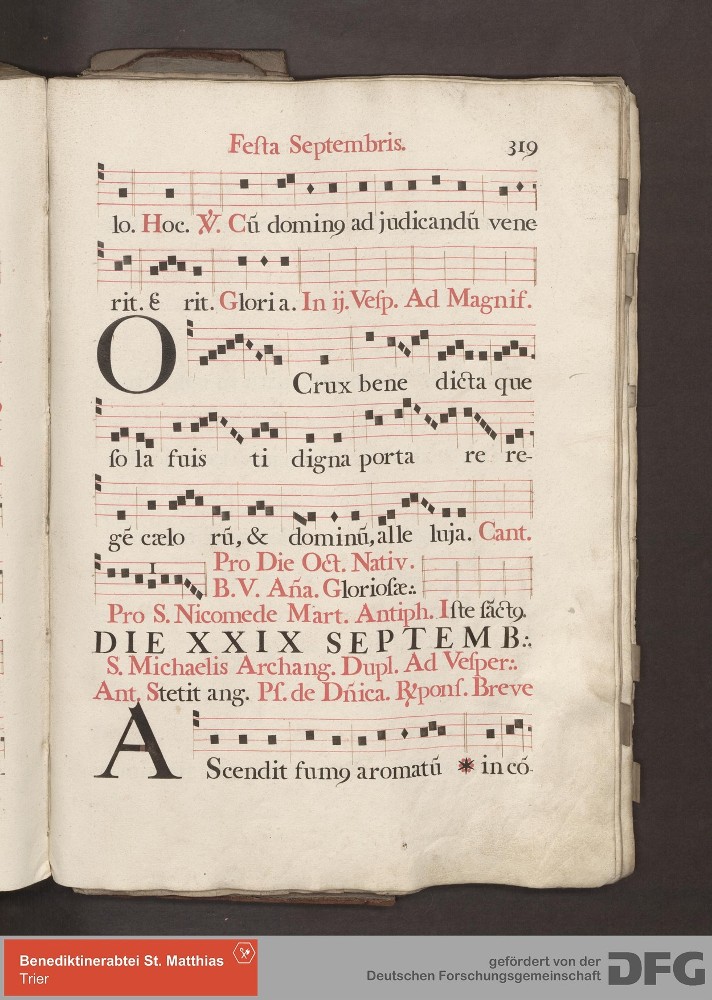 Festa Septembris. 319
lo. Hoc. ℣. Cū dominꝯ ad judicandū vene
rit. & rit. Gloria. In ij. Vesp. Ad Magnif.
O Crux bene dicta que
so la fuis ti digna porta re re-
gē cælo rū, & dominū, alle luja. Cant.
1 Pro Die Oct. Nativ.
B.V. Aña. Gloriosæ:.
Pro S. Nicomede Mart. Antiph. Iste sāctꝯ.
DIE XXIX SEPTEMB:.
S. Michaelis Archang. Dupl. Ad Vesper:.
Ant. Stetit ang. Ps. de Dñica. ℟pons. Breve
AScendit fumꝯ aromatū * in cō-
Benediktinerabtei St. Matthias
Trier
gefördert von der
Deutschen Forschungsgemeinschaft
DFG